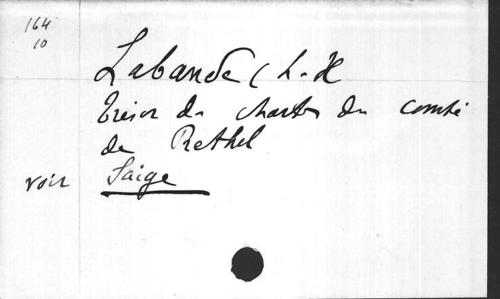 164
10
Labande (L.-H
Trésor des chartes du comté
de Rethel
voir Saige